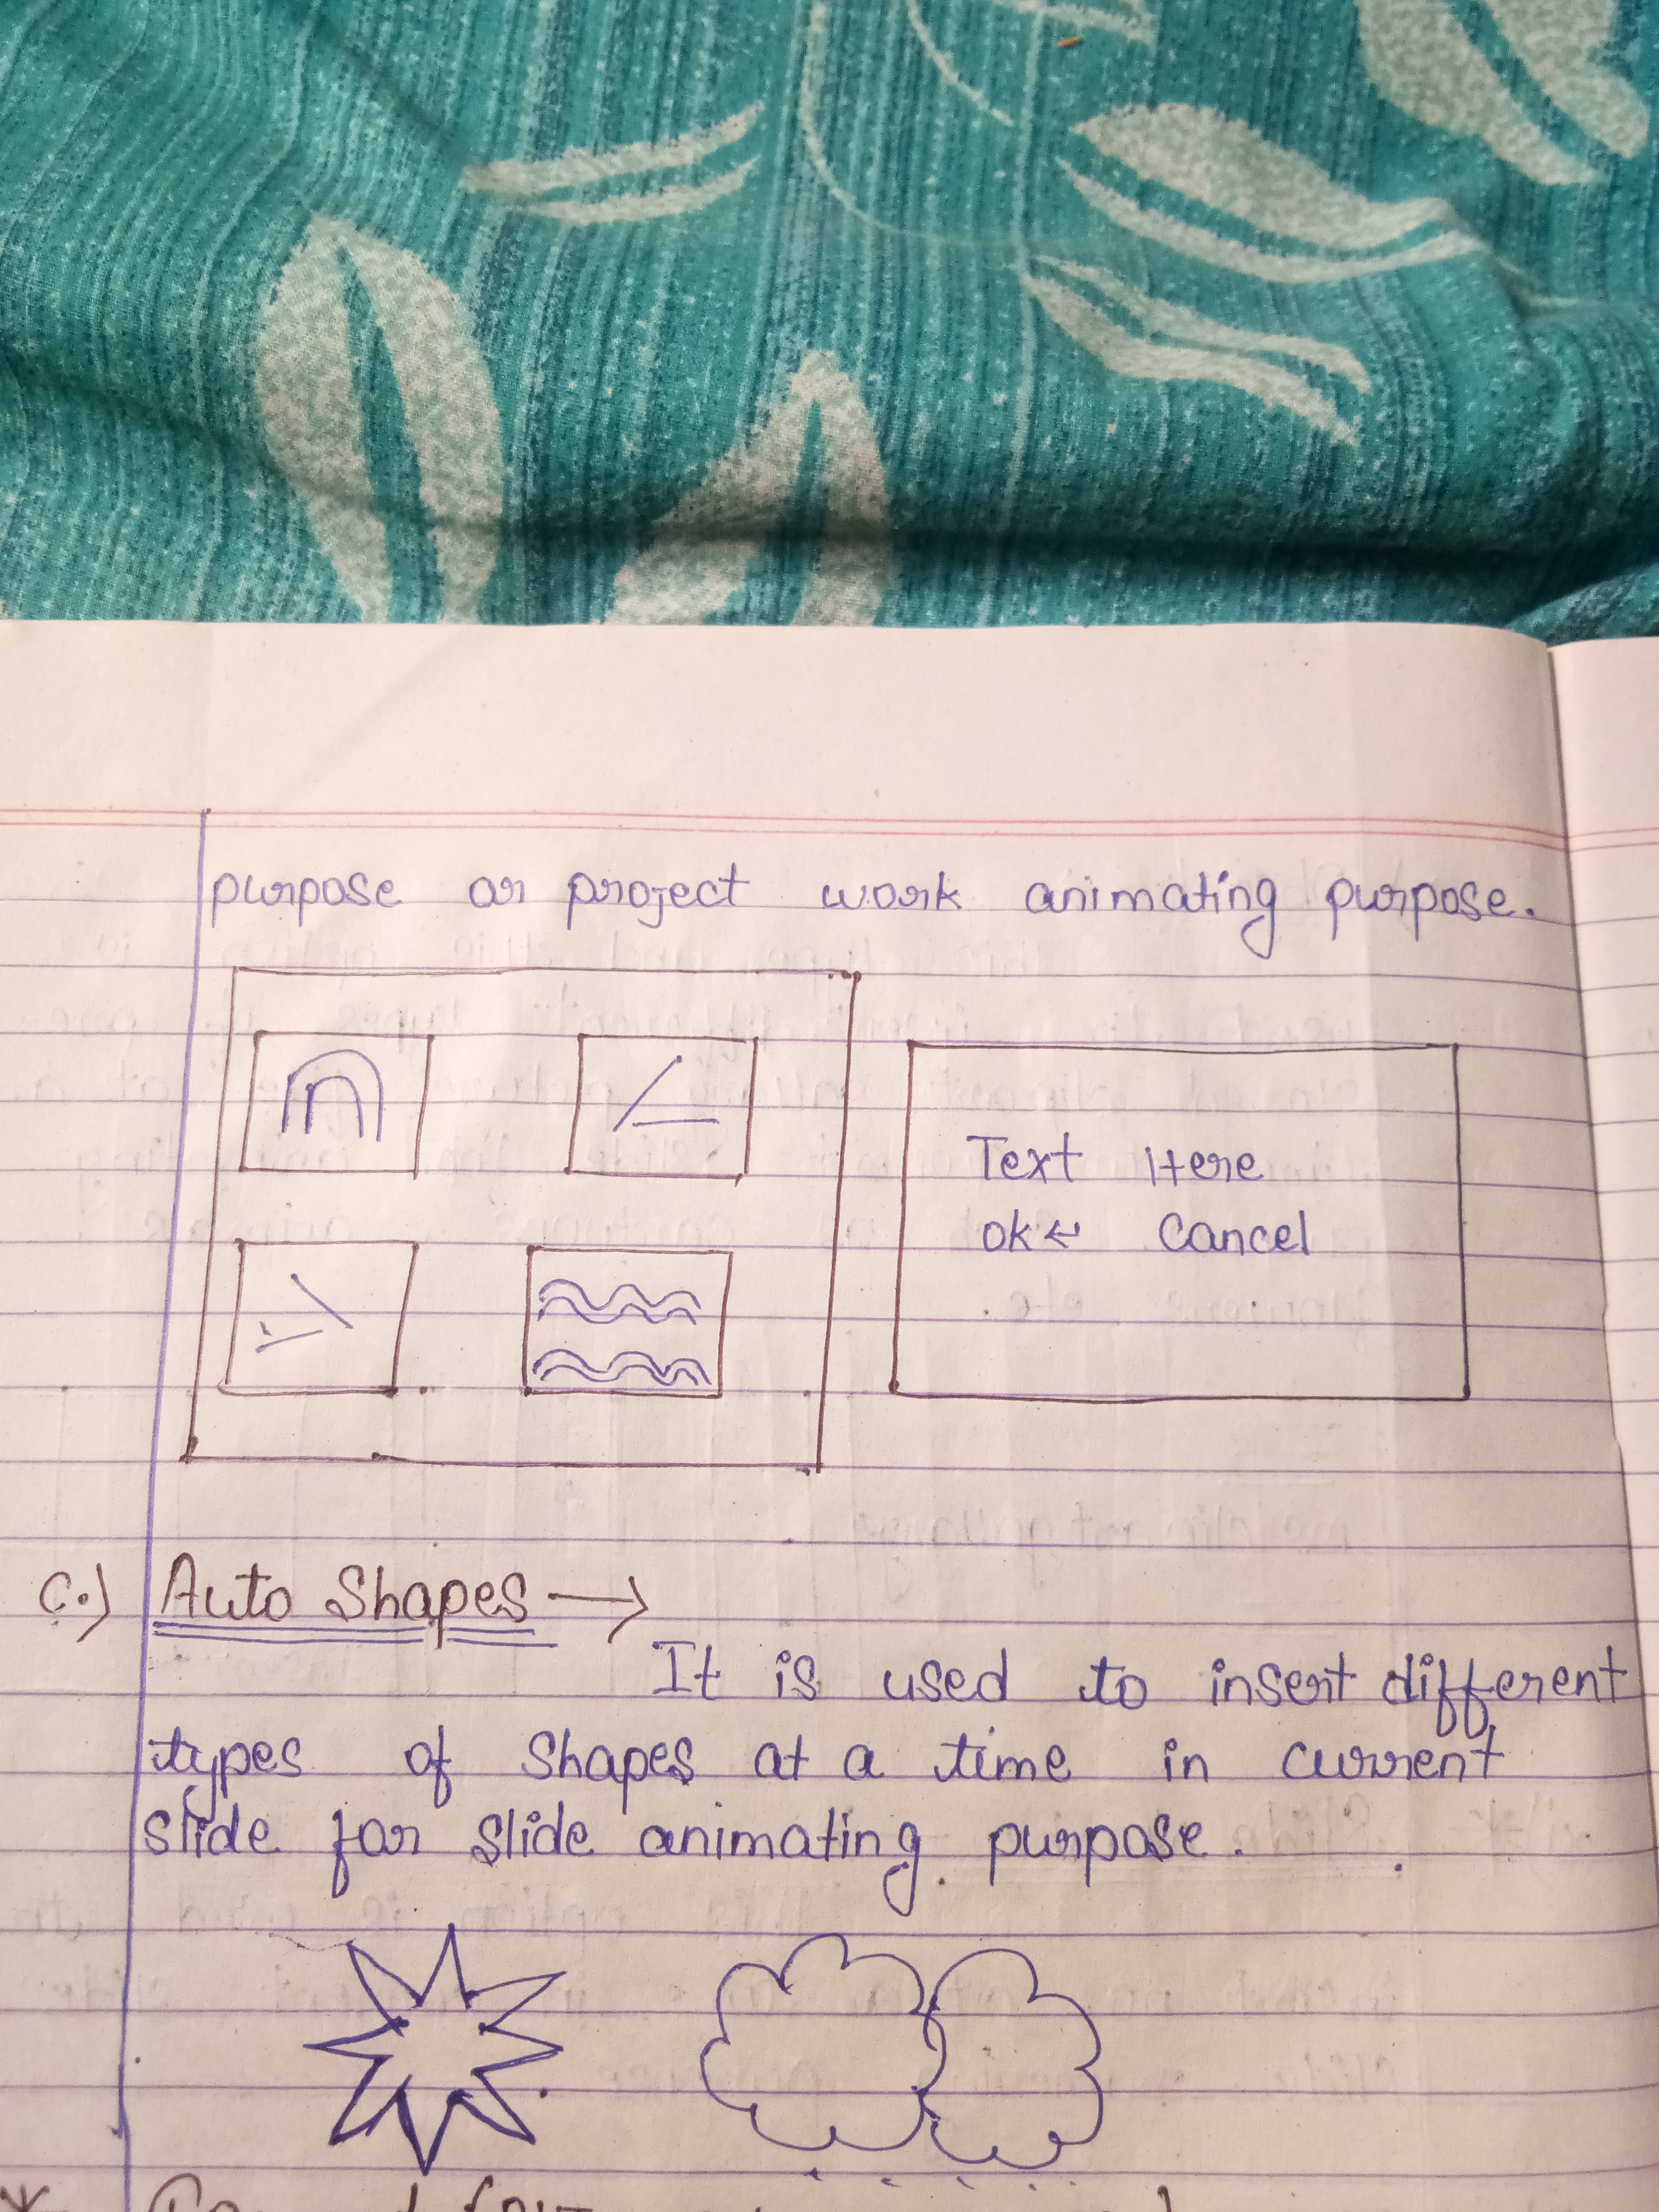 purpose or project work animating purpose.
Text Here
ok↵ Cancel
C.) Auto Shapes →
It is used to insert different
types of shapes at a time in current
slide for slide animating purpose.